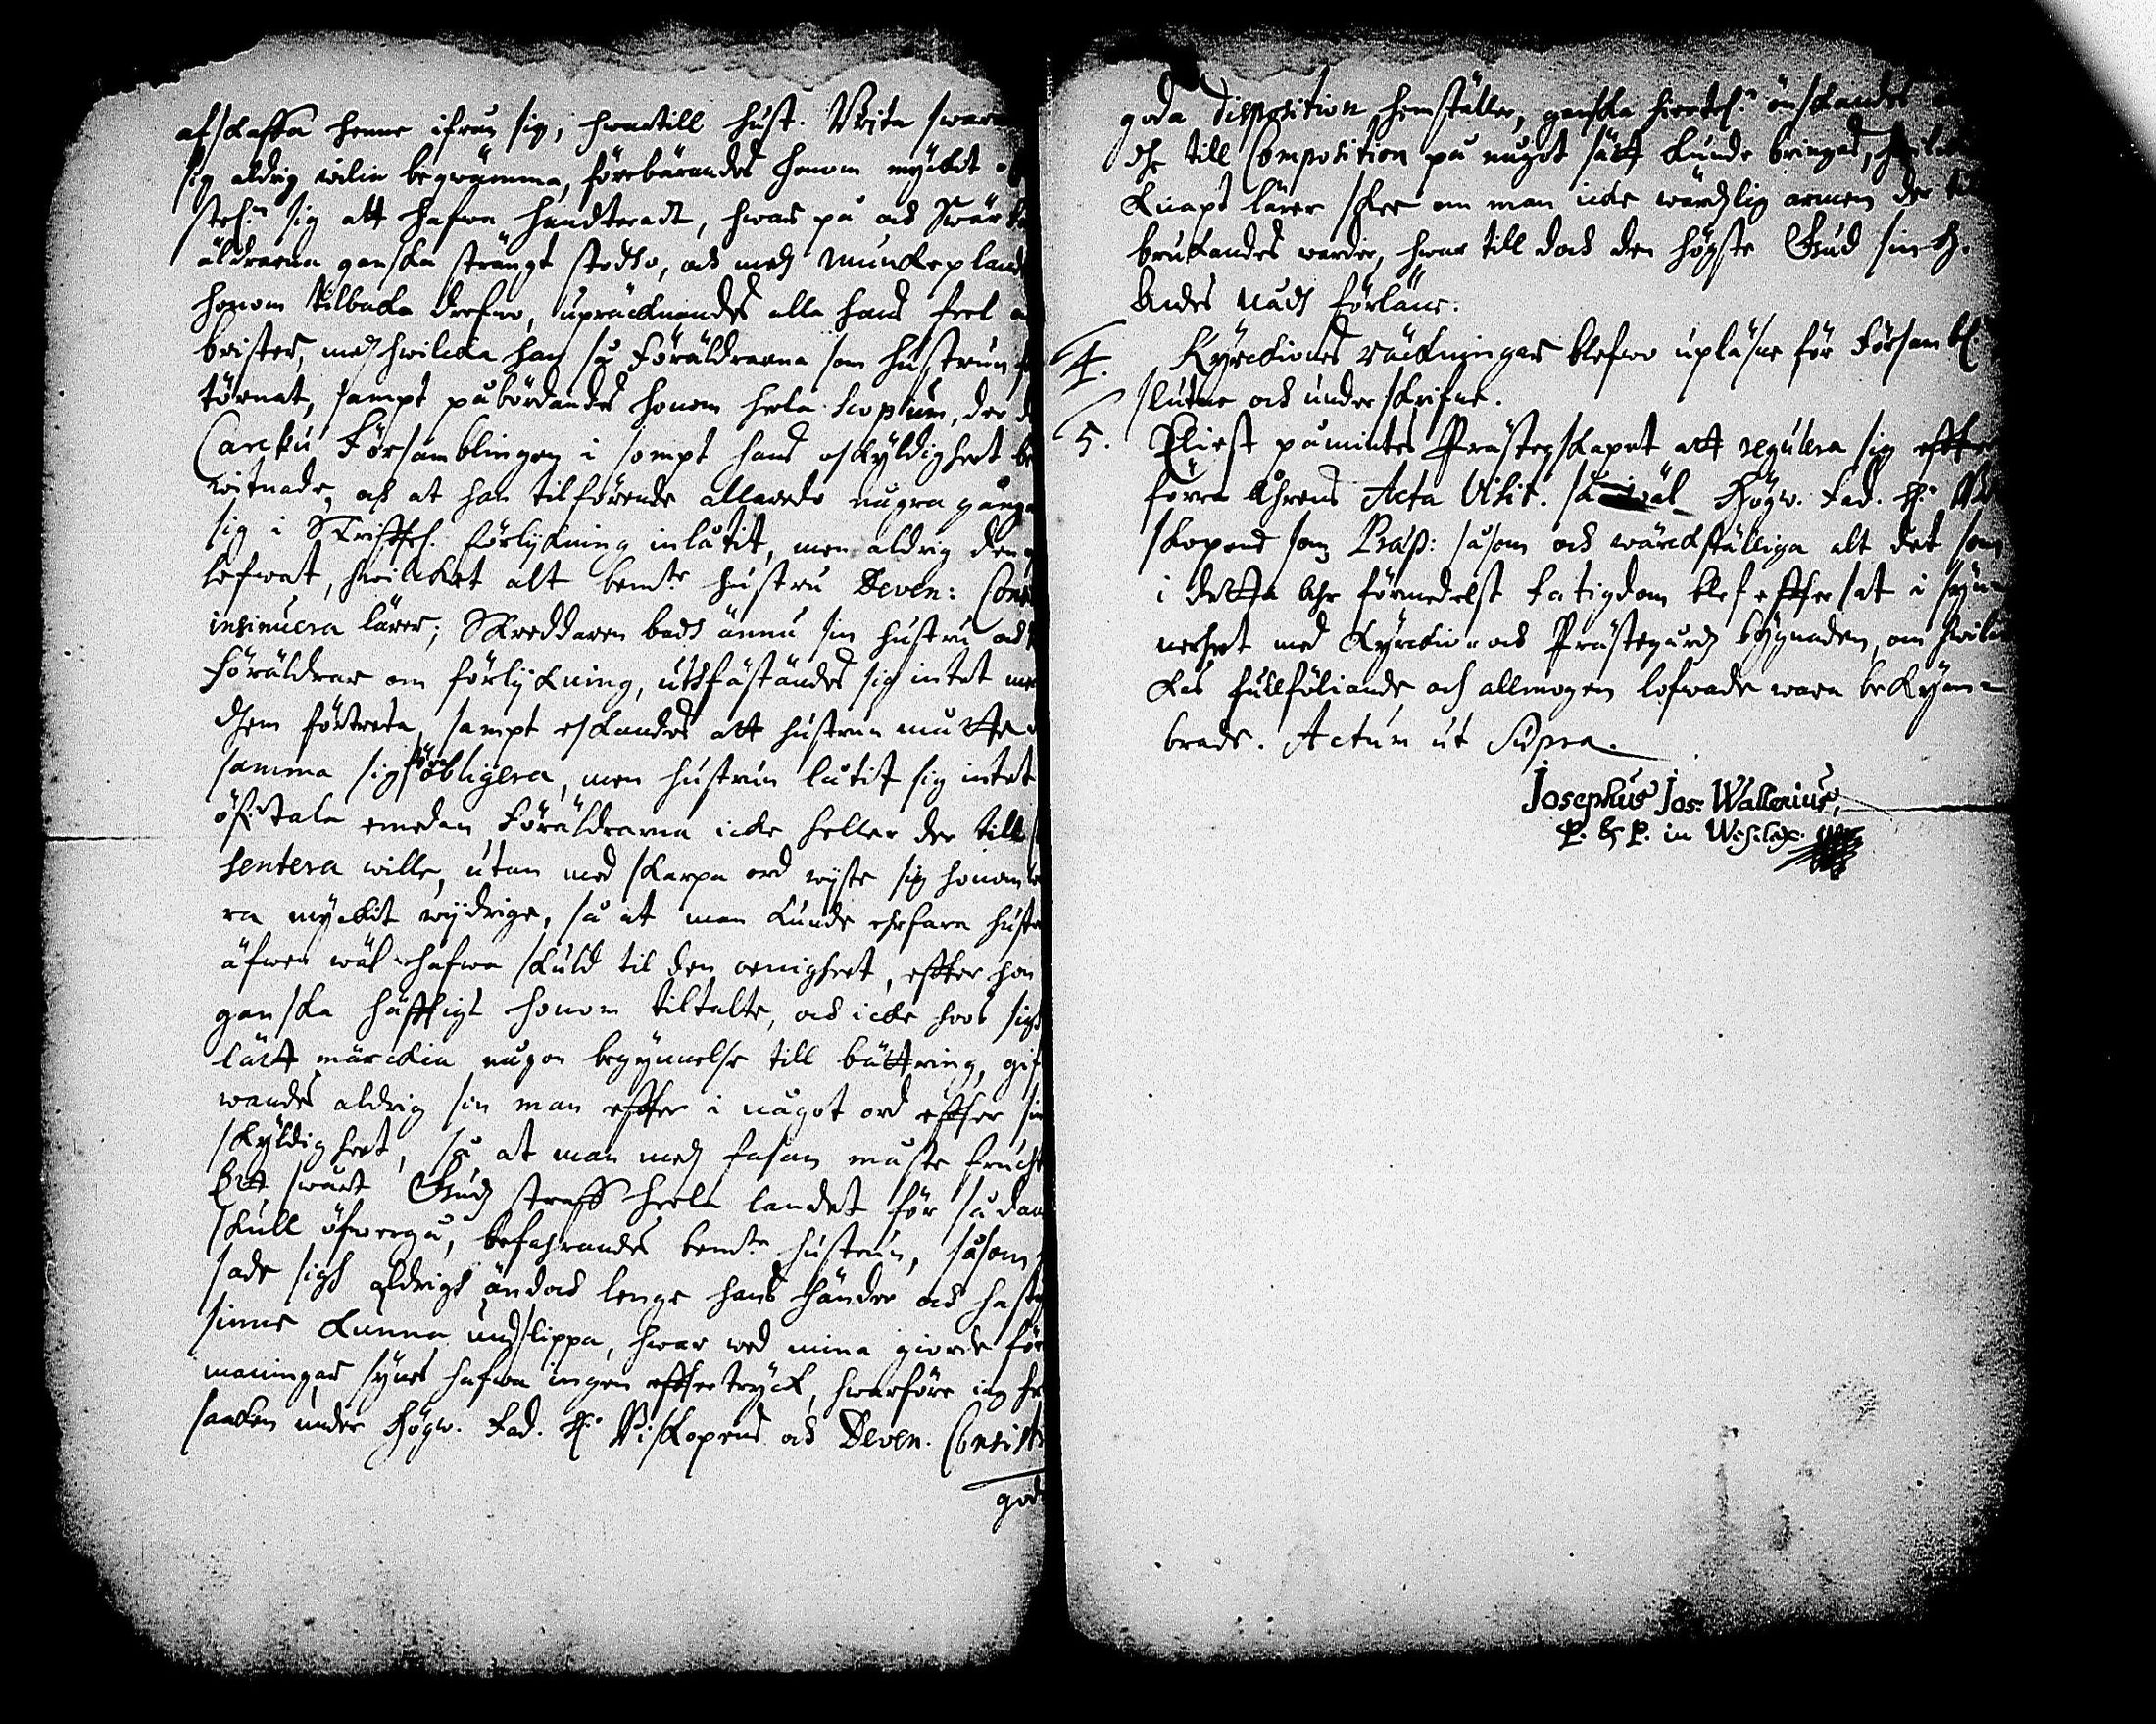 afskaffa henne ifrån sig, hwartill hust. Brita swara
sig aldrig wilia beqwämma, förebärandes honom myckit
stel:n sig att hafwa handterat, hwar på och Swär
äldrarna ganska strängt stodho, och medh munckepland
honom tilbaka drefwo, upräcknandes alla hans feel
brister, medh hwilcka han så Föräldrarna som hustrun
törnat, sampt påbördandes honom hela scopum, der
Carcku Församblingen i sompt hans oskyldigheet be
witnade, och at han tilförende allaredo nugra gånge
sig i Skrifftel. förlijkning inlåtit, men aldrig den
lofwat, hwilcket alt bem:te hustru Reven: Cons
insinuera lärer; Skreddaren badh ännu sin hustru och
Föräldrar om förlijkning, uthfästandes sig intet me
dhem förtreta, sampt eskandes att hustrun måtte
samma sig förobligera, men hustrun låtit sig intet
öf:tala emedan Föräldrarna icke heller der till
sentera wille, utan med skarpa ord wyste sig honom
ra myckit wijdrige, så at man kunde ehrfara hustr
äfwen wäl hafwa skuld til den oenigheet, effter hon
ganska häfftigt honom tiltalte, och icke hoos sigh
lätt märckia nugon begynnelse till bättring, gif
wandes aldrig sin man effter i något ord effter sin
skyldigheet, så at man medh fasan måste frucht
Ett swårt Gudz straff heela landet för sådan
skull öfwergå, befahrandes bem:te hustrun, såsom
sade sigh aldrigh ändoch lenge hans händer och hasty
sinne kunna undslippa, hwar wed mina giorde för
maningar synes hafwa ingen efftertryck, hwarföre iag he
saaken under Högw. Fad. H:r Biskopens och Reven. Consist
god
goda disposition hemställer, ganska hiertel:n önskandes
dhe till Composition på nugot sätt kunde bringas, hwilcke
knapt lärer skee om man icke wärdzlig armen der til
brukandes warder, hwar till doch den högste Gud sin H.
Andes nådh förläne.
4. Kyrckiones räckningar blefwo upläsne för Församb:
slutne och underskrifne.
5. Elliest påmintes Prästerskapet att regulera sig effter
förra åhrens Acta Visit. så wäl Högw. Fad. H:r Bi
skopens som Præp: såsom och wärckställiga alt det som
i detta åhr förmedelst fatigdom blef effter sat i syn-
nerhet med Kyrckio- och Prästegårdz bygnaden, om hwilc
kas fullföliande och allmogen lofwade wara bekym-
brade. Actum ut Supra.
Josephus Jos: Wallerius,
P. & P. in